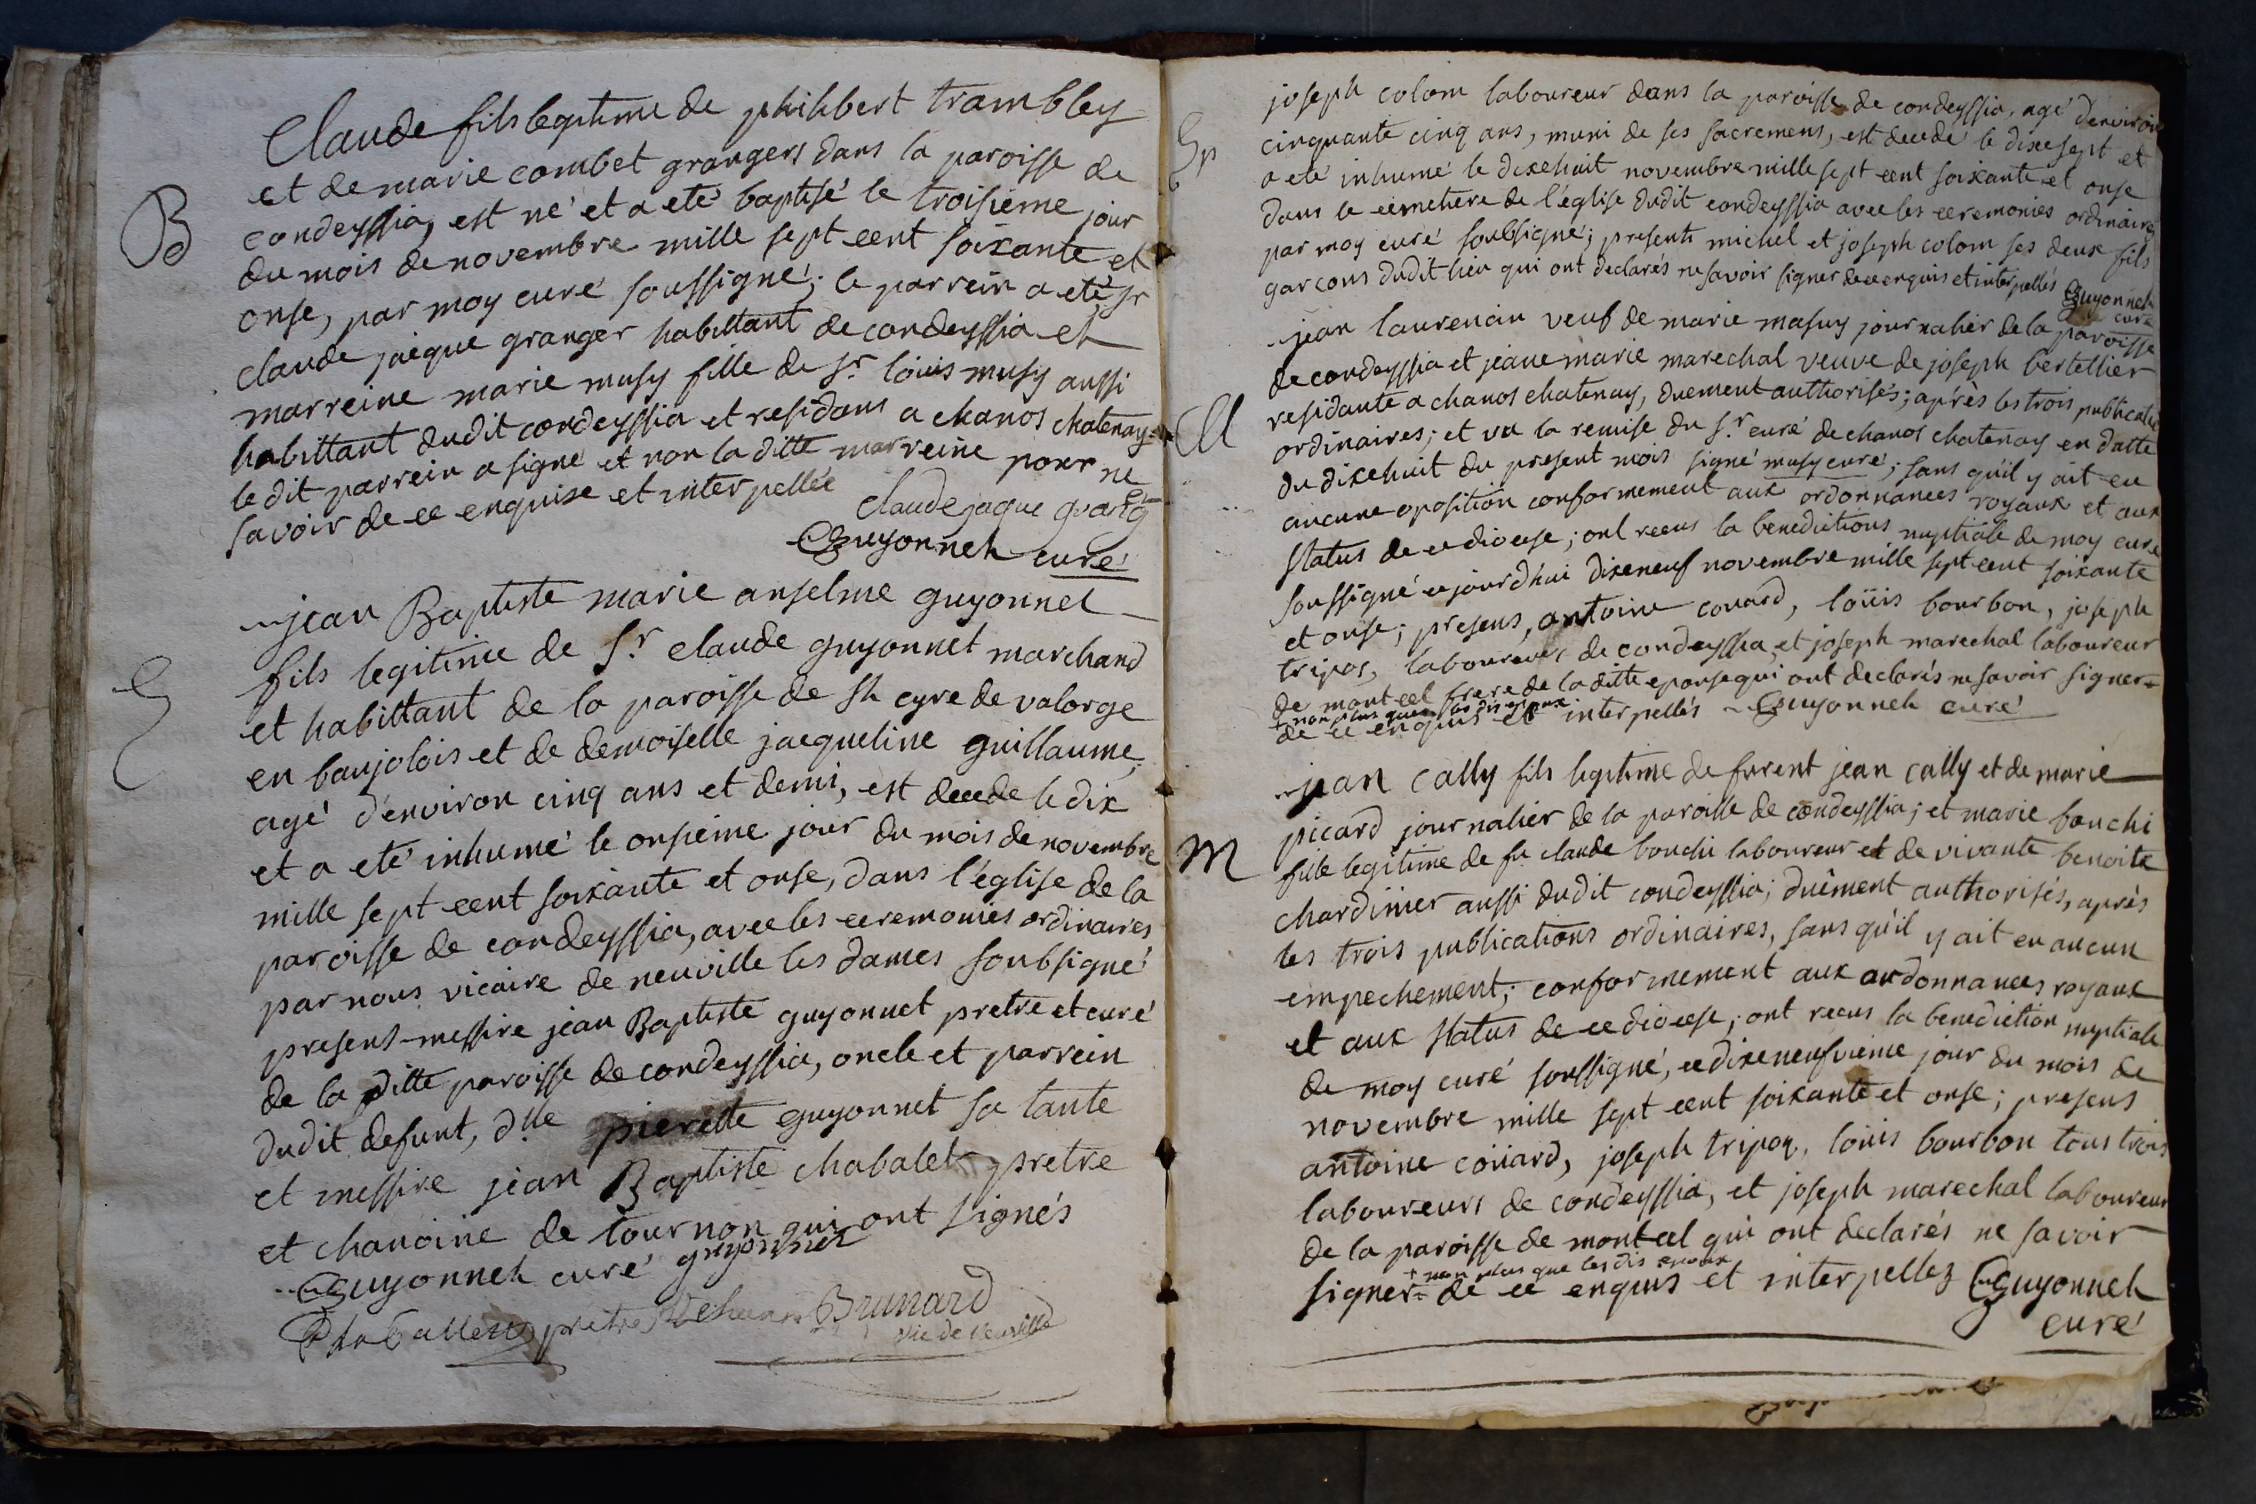 Claude fils legitime de philibert trambley
et de marie combet grangers dans la paroisse de
B
condeyssia, est né et a eté baptisé le troisiéme jour
du mois de novembre mille sept cent soixante et
onse, par moy curé soussigné; le parrein a eté sr
claude jacque granger habittant de condeyssia et
marreine marie musy fille de sr. loüis musy aussi
habittant dudit condeyssia et residans a chanos chatenay
le dit parrein a signé et non la ditte marreine pour ne
savoir de ce enquise et interpellée
claude jaque
Guyonnet curé
jean Baptiste marie anselme guyonnet
fils legitime de Sr. claude guyonnet marchand
et habittant de la paroisse de st cyre de valorge
en baujolois et de demoiselle jacqueline guillaume,
agé d'environ cinq ans et demi, est decede le dix
et a eté inhumé le onsiéme jour du mois de novembre
mille sept cent soixante et onse, dans l'église de la
paroisse de condeyssia, avec les ceremonies ordinaires
par nous vicaire de neuville les dames soubsigné
presens messire jean Baptiste guyonnet pretre et curé
de la ditte paroisse de condeyssia, oncle et parrein
dudit defunt, dlle pierette guyonnet sa tante
et messire jean Baptiste chabalet pretre
et chanoine de tournon qui ont signés
Guyonnet curé guyonnet
pretre Brunard
vic de neuville
joseph colom laboureur dans la paroisse de condeyssia, agé d'environ
cinquante cinq ans, muni de ses sacremens, est decedé le dixesept et
a eté inhumé le dixehuit novembre mille sept cent soixante et onse
dans le cimetiere de l'église dudit condeyssia avec les ceremonies ordinaires
par moy curé soubsigné; presents michel et joseph colom ses deux fils
garcons dudit lieu qui ont declarés ne savoir signer de ce enquis et interpellés Guyonnet
curé
jean laurencin veuf de marie masuy journalier de la paroisse
de condeyssia et jeane marie marechal veuve de joseph bertellier
M
residante a chanos chatenay, duement authorisés; après les trois publications
ordinaires; et vu la remise du sr. curé de chanos chatenay en datte
du dixehuit du present mois signé musy curé; sans qu'il y ait eu
aucune oposition conformement aux ordonnances royaux et aux
status de ce diocese; ont recus la benedictions nuptiale de moy curé
soussigné cejourd'hui dixeneuf novembre mille sept cent soixante
et onse; presens, antoine couard, loüis bourbon, joseph
tripoz, laboureurs de condeyssia, et joseph marechal laboureur
de montcel frere de la ditte epouse qui ont declarés ne savoir signer
+ non plus que les dis epoux
de ce enquis et interpellés Guyonnet curé
jean cally fils legitime de furent jean cally et de marie
picard journalier de la paroisse de condeyssia; et marie bouchi
M
fille legitime de fu claude bouchi laboureur et de vivante benoite
chardinier aussi dudit condeyssia; duëment authorisés, aprés
les trois publications ordinaires, sans qu'il y ait eu aucun
empechement; conformement aux ordonnances royaux
et aux status de ce diocese; ont recus la benediction nuptiale
de moy curé soussigné, ce dixeneufvieme jour du mois de
novembre mille sept cent soixante et onse; presens
antoine coüard, joseph tripoz, loüis bourbon tous trois
laboureurs de condeyssia, et joseph marechal laboureur
de la paroisse de montcel qui ont declarés ne savoir
+ non plus que les dis epoux
signer de ce enquis et interpellez Guyonnet
curé